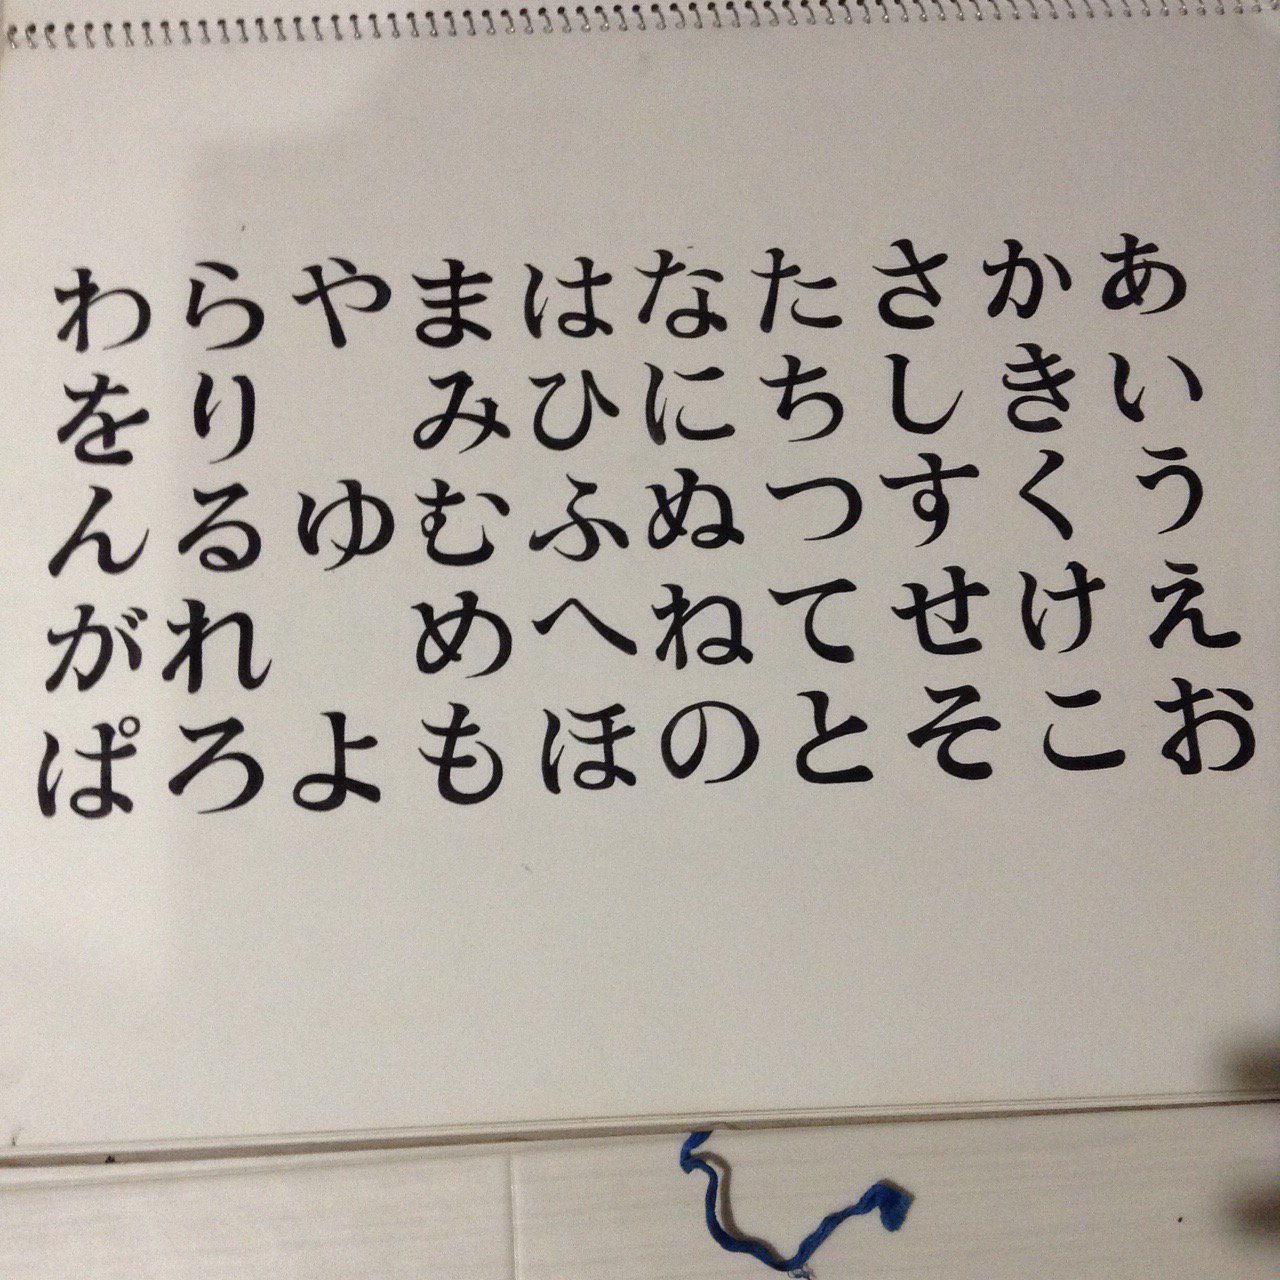 あいうえお
かきくけこ
さしすせそ
たちつてと
なにぬねの
はひふへほ
まみむめも
やゆよ
らりるれろ
わをんがぱ